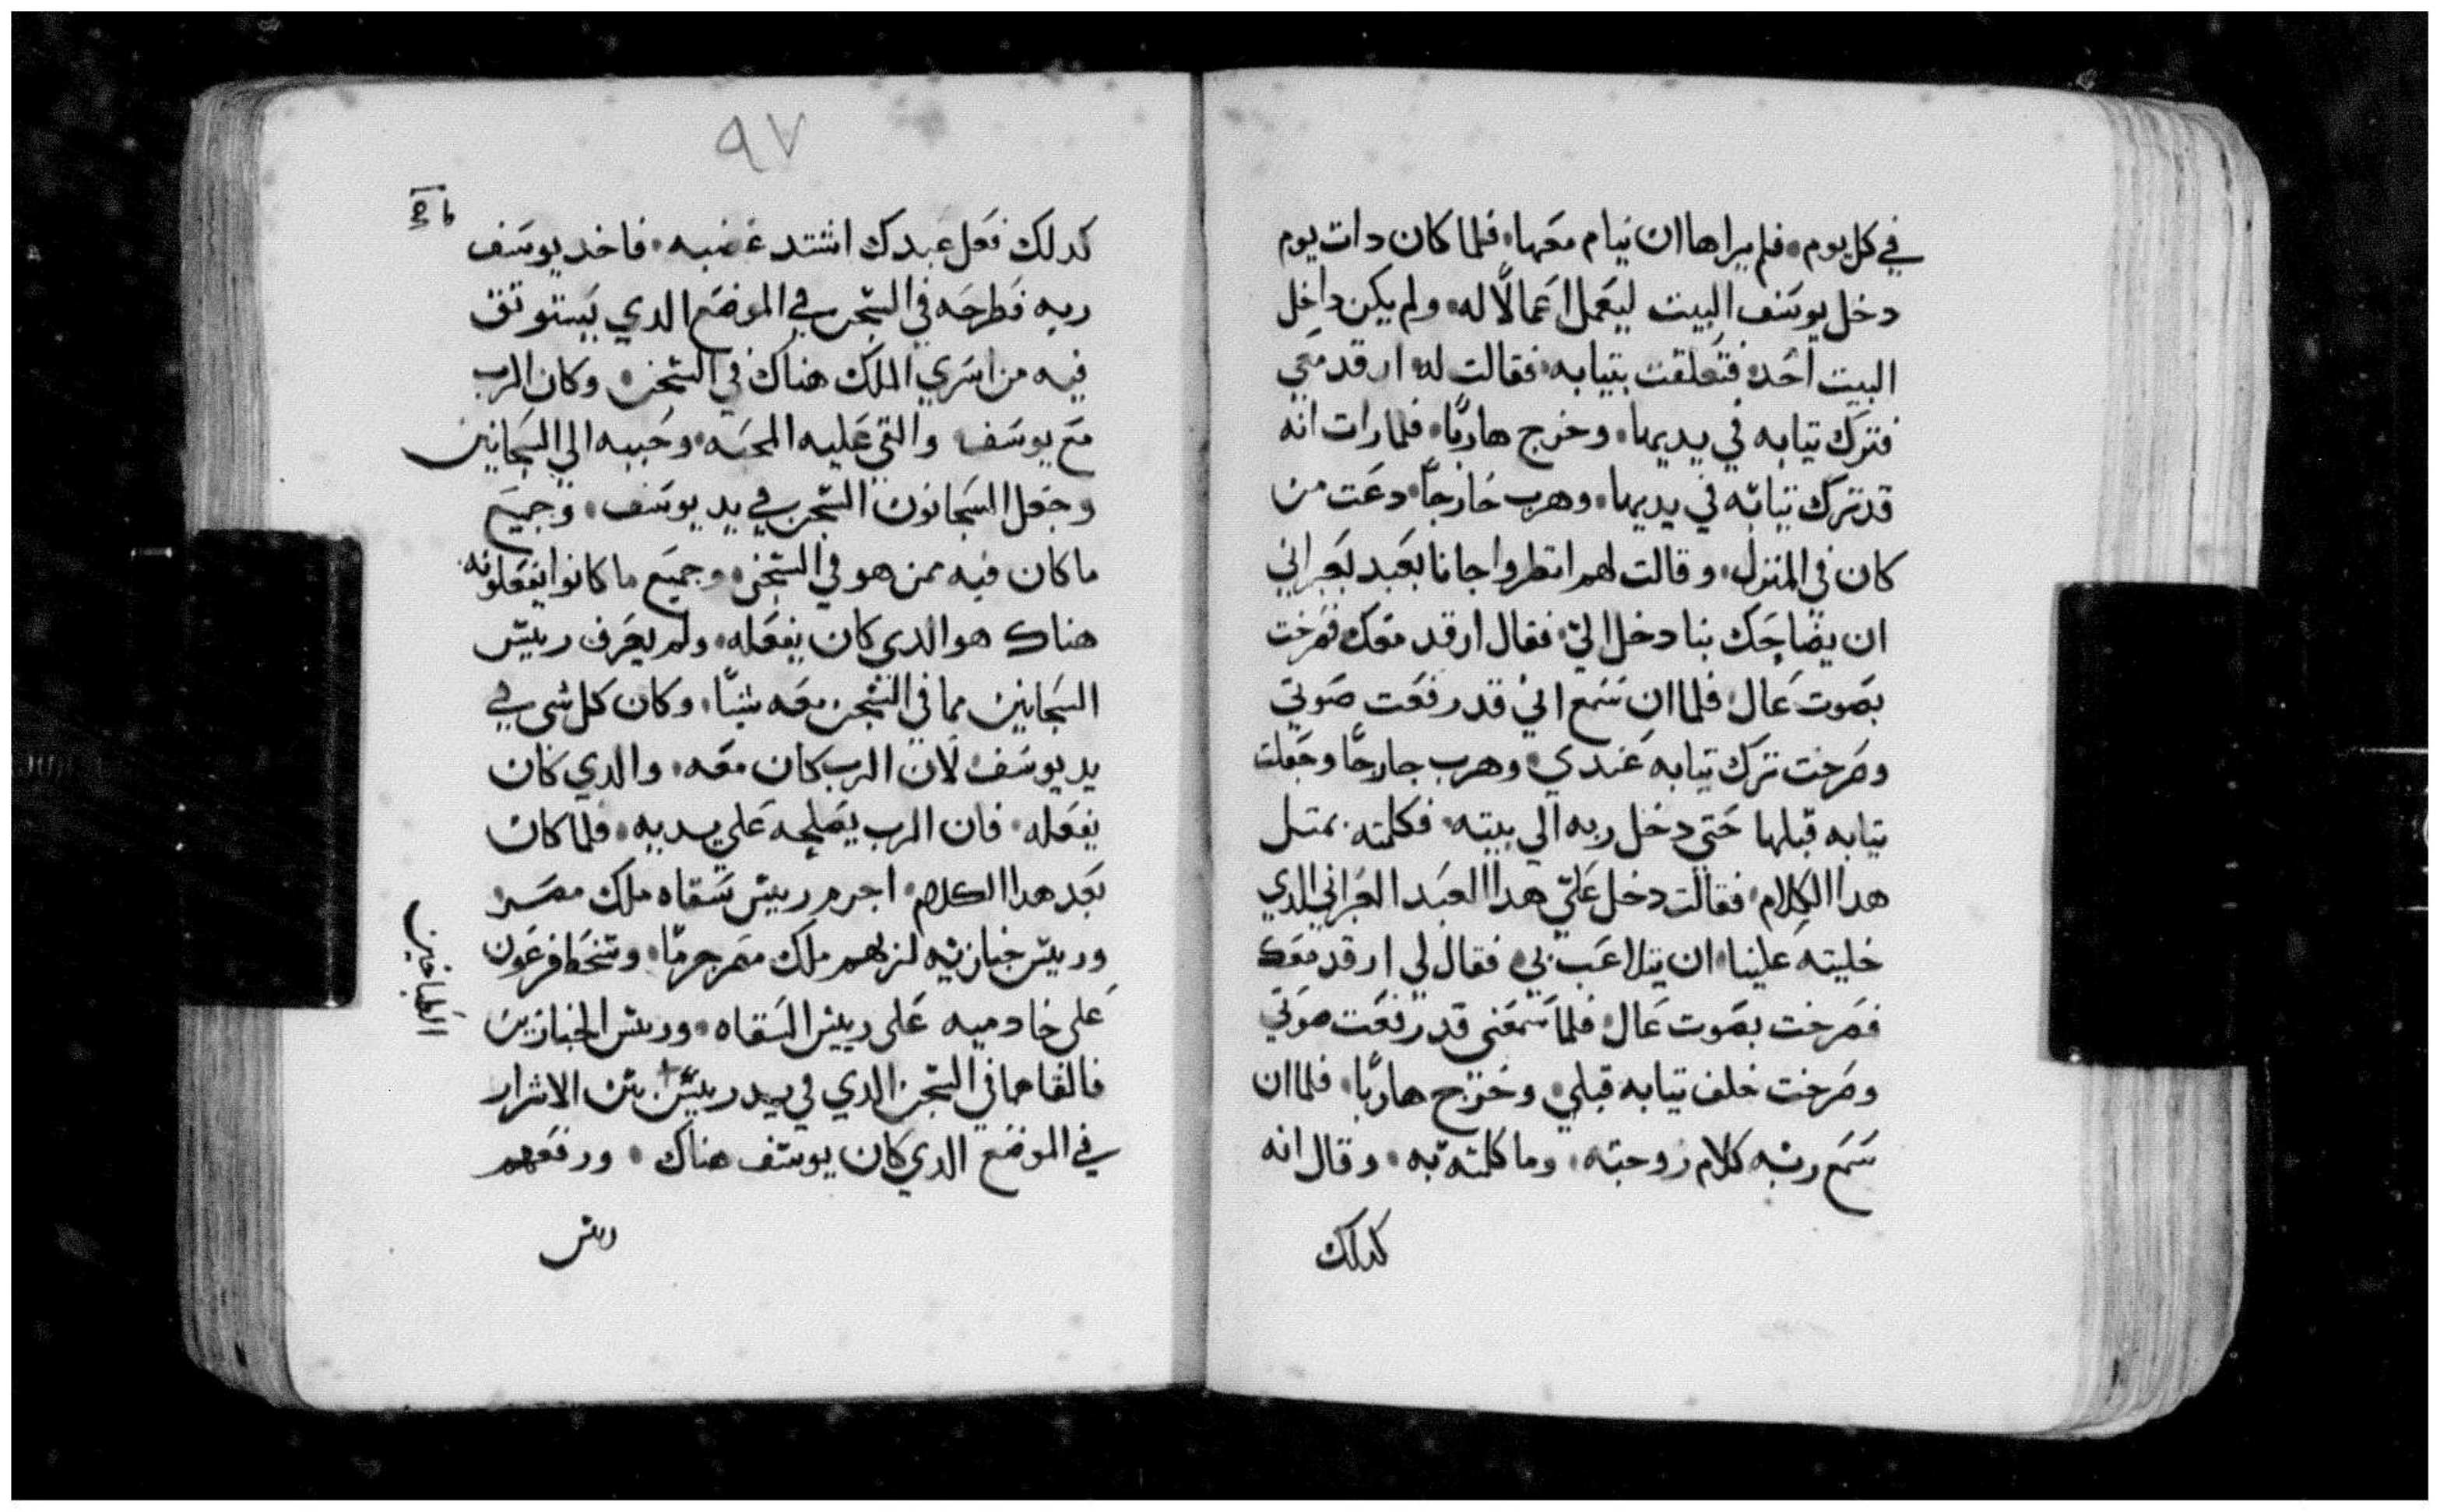 في كل يوم. فلم يراها ان ينام معها. فلما كان دات يوم
دخل يوسف البيت ليعمل اعمالًا له. ولم يكن داخل
البيت احد. فتعلقت بتيابه. فقالت له ارقد معي
فترك تيابه في يديها. وخرج هاربًا. فلما رات انه
قد ترك تيابه في يديها. وهرب خارجًا. دعت من
كان في المنزل. وقالت لهم انظروا جانا بعبد عبراني
ان يضاحك بنا دخل اليّ. فقال ارقد معك فصرخت
بصوت عال. فلما ان سمع اني قد رفعت صوتي
وصرخت ترك تيابه عندي. وهرب خارجًا وجعلت
تيابه قبلها حتى دخل ربه الي بيته. فكلمته بمتل
هدا الكلام. فقالت دخل عليّ هدا العبد العبراني الدي
خليته علينا. ان يتلاعب بي. فقال لي ارقد معك
فصرخت بصوت عال. فلما سمعني قد رفعت صوتي
وصرخت خلف تيابه قبلي. وخرج هاربًا. فلما ان
سمع ربه كلام زوجته. وما كلمته به. وقال انه
كدلك
٩٧
كدلك فعل عبدك اشتد غضبه. فاخد يوسف
ربه فطرحه في السجن في الموضع الدي يستوتق
فيه من اسري الملك هناك في السجن. وكان الرب
مع يوسف والقي عليه المحبه. وحببه الي السجانين
وجعل السجانون السجن في يد يوسف. وجميع
ما كان فيه ممن هو في السجن. وجميع ما كانوا يفعلونه.
هناك هو الدي كان يفعله. ولم يعرف رييس
السجانين مما في السجن معه شيًا. وكان كل شي في
يد يوسف لان الرب كان معه. والدي كان
يفعله. فان الرب يصلحه على يديه. فلما كان
بعد هدا الكلام. اجرم رييس سقاه ملك مصر
ورييس خبازيه لربهم ملك مصر جرمًا. وسخط فرعون
على خادميه على رييس السقاه. ورييس الخبازين
فالقاهما في السجن الدي في يد رييس الاشرار
في الموضع الدي كان يوسف هناك. ورفعهم
الطباخين
رييس